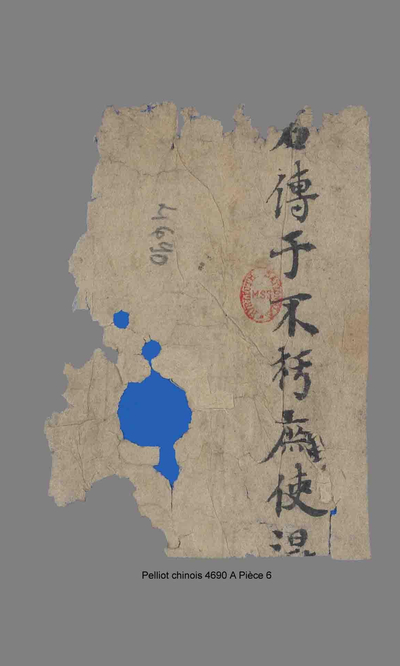 傳于不朽使
4690
MSS
Pelliot chinois 4690 A Pièce 6